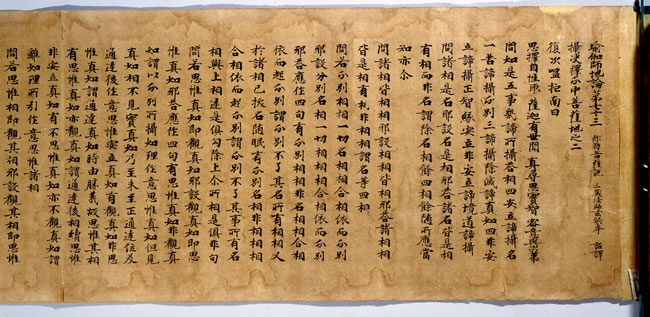 瑜伽師地論卷第七十三 弥勒菩薩說 三藏法師玄奘奉 詔譯
攝決擇分中菩薩地之二
復次嗢拕南曰
思擇自性所 薩迦有世間 真尋思實智
問如是五事幾諦所攝答相四安立諦攝名
一苦諦攝分別三諦攝除滅諦真如四非安
立諦攝正智緣安立非安立諦境道諦攝
問諸相是名耶設名是相耶答諸名皆是相
有相而非名謂除名相餘四相隨所應當
知亦尒
問諸相皆相相耶設相相皆相耶答諸相相
皆是相有相非相相謂名等四相
問若分別相相一切相名相合相依而分別
耶設分別名相一切相相合相依而分別
耶答應作四句有分別相相非名相相合相
依而起分別謂分別不了其名所有相相又
於諸相已拔名隨眠有分別名相非相相
合相依而起分別謂分別不了其事所有名
相與上相違是俱句除上尒所相是非句
問若思惟真如即觀真如耶設觀真如即思
惟真如耶答應作四句有思惟真如非觀真
如謂以分別所攝如理作意思惟真如但見
真如相不見實真如乃至未至正通達位及
通達後作意思惟安立真如有觀真如非思
惟真如謂通達真如時由勝義故思惟其相
有思惟真如亦觀真如謂通達後相續思惟
非安立真如有不思惟真如亦不觀真如謂
離如理所引作意思惟諸相
問若思惟相即觀其相耶設觀其相即思惟